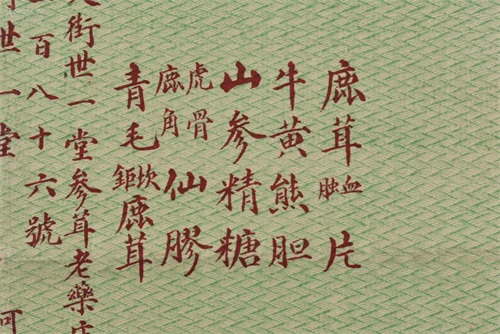 鹿茸血片
牛黄熊胆
山参精糖
虎骨鹿角仙膠
青毛坎鉅鹿茸
街世一堂參茸老藥
百八十六號
世一堂